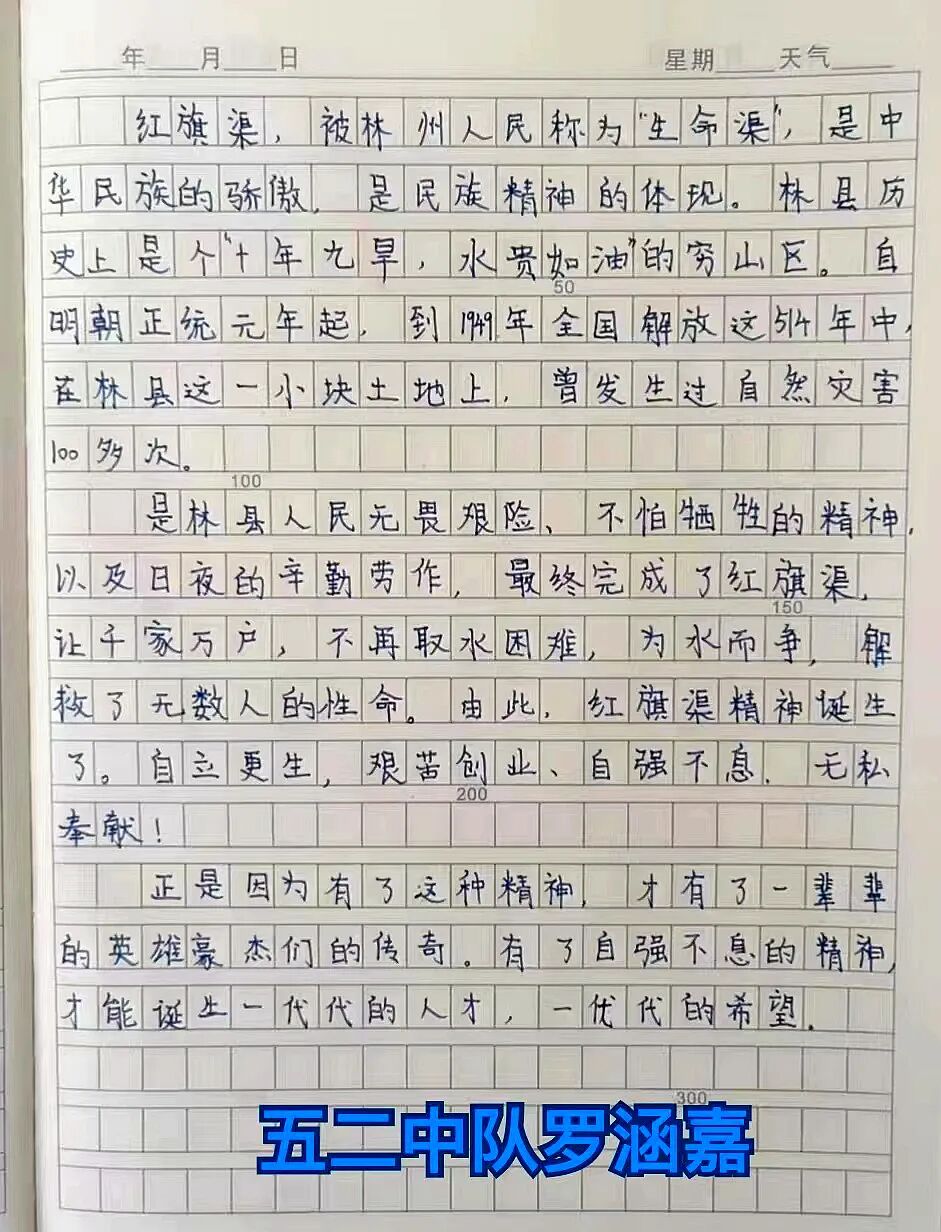 年 月 日 星期 天气
红旗渠，被林州人民称为“生命渠”，是中
华民族的骄傲，是民族精神的体现。林县历
史上是个“十年九旱，水贵如油”的穷山区。自
50
明朝正统元年起，到1949年全国解放这514年中，
在林县这一小块土地上，曾发生过自然灾害
100多次。
100
是林县人民无畏艰险、不怕牺牲的精神，
以及日夜的辛勤劳作，最终完成了红旗渠，
150
让千家万户，不再取水困难，为水而争，解
救了无数人的性命。由此，红旗渠精神诞生
了。自立更生，艰苦创业、自强不息、无私
200
奉献！
正是因为有了这种精神，才有了一辈辈
的英雄豪杰们的传奇。有了自强不息的精神，
才能诞生一代代的人才，一优代的希望。
300
五二中队罗涵嘉